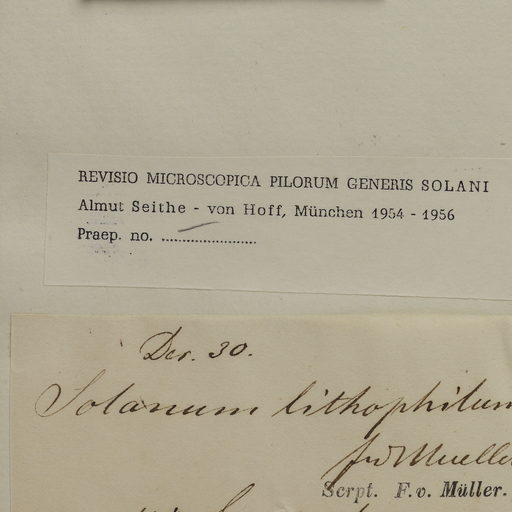 REVISIO MICROSCOPICA PILORUM GENERIS SOLANI
Almut Seithe - von Hoff, München 1954 - 1956
Praep. no. ........................
Dec. 30.
Solanum lithophilum
Scrpt. F. v. Müller.